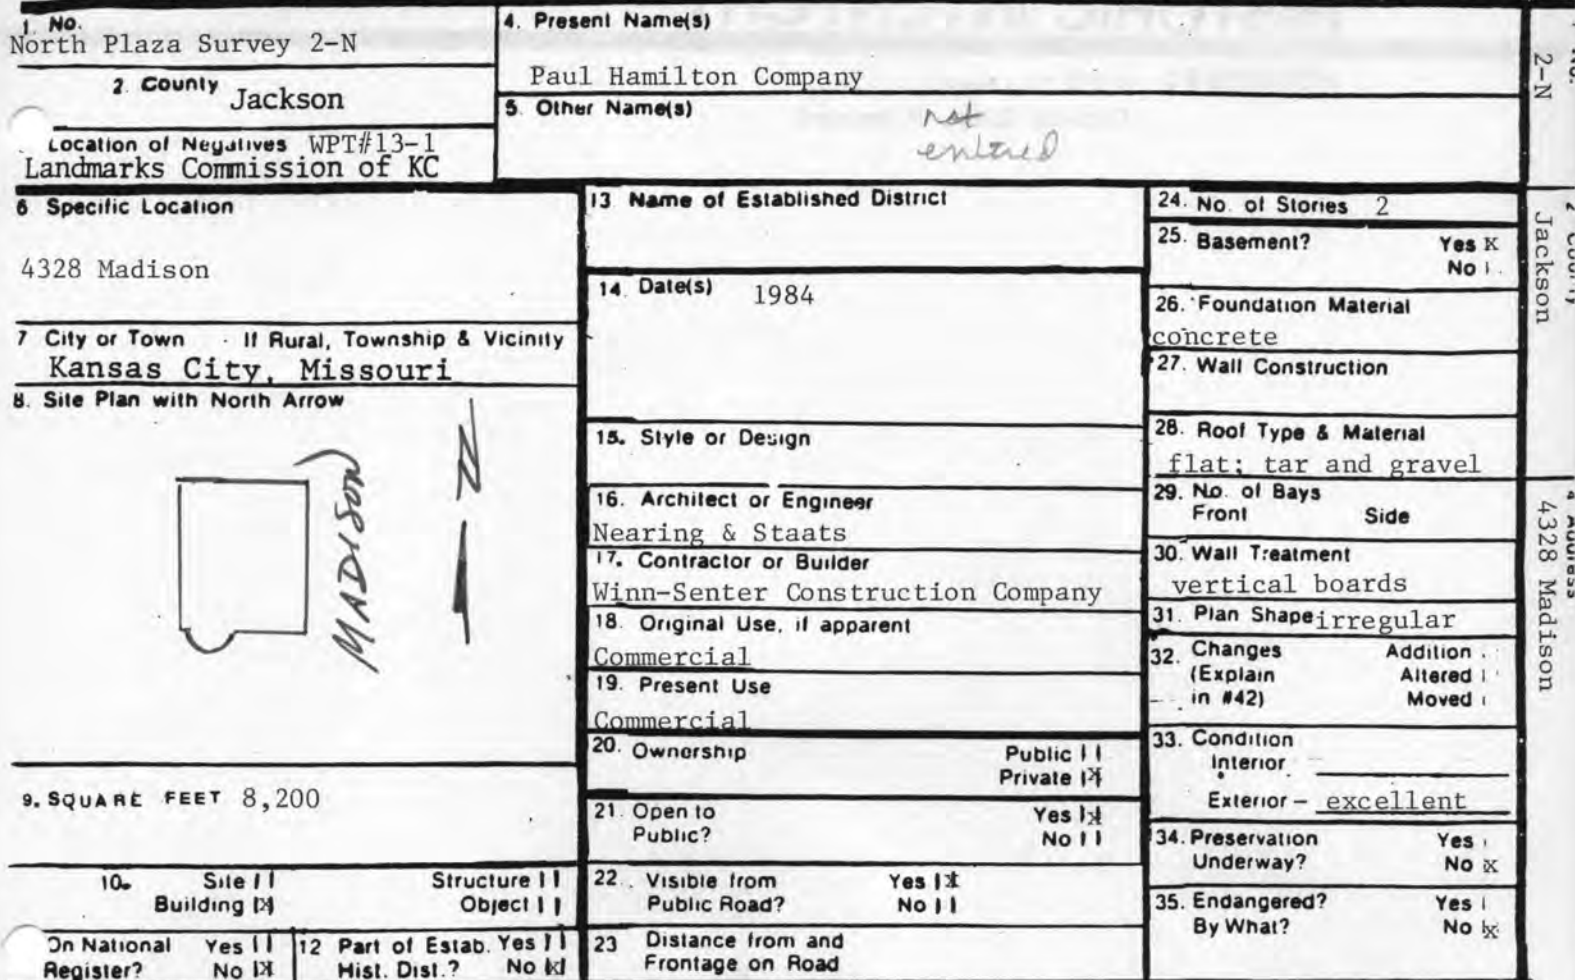 1. No.
North Plaza Survey 2-N
2. County Jackson
Location of Negatives WPT#13-1
Landmarks Commission of KC
4. Present Name(s)
Paul Hamilton Company
5. Other Name(s)
not
entered
6 Specific Location
4328 Madison
7 City or Town If Rural, Township & Vicinity
Kansas City, Missouri
8. Site Plan with North Arrow
MADISON
N
9. SQUARE FEET 8,200
10. Site Structure
Building X Object
On National Yes
Register? No X
12 Part of Estab. Yes
Hist. Dist.? No X
13 Name of Established District
14. Date(s) 1984
15. Style or Design
16. Architect or Engineer
Nearing & Staats
17. Contractor or Builder
Winn-Senter Construction Company
18. Original Use, if apparent
Commercial
19. Present Use
Commercial
20. Ownership Public
Private X
21. Open to Yes X
Public? No
22. Visible from Yes X
Public Road? No
23 Distance from and
Frontage on Road
24. No. of Stories 2
25. Basement? Yes X
No
26. Foundation Material
concrete
27. Wall Construction
28. Roof Type & Material
flat; tar and gravel
29. No. of Bays
Front Side
30. Wall Treatment
vertical boards
31. Plan Shape irregular
32. Changes Addition
(Explain Altered
in #42) Moved
33. Condition
Interior
Exterior – excellent
34. Preservation Yes
Underway? No X
35. Endangered? Yes
By What? No X
2-N
Jackson
4328 Madison